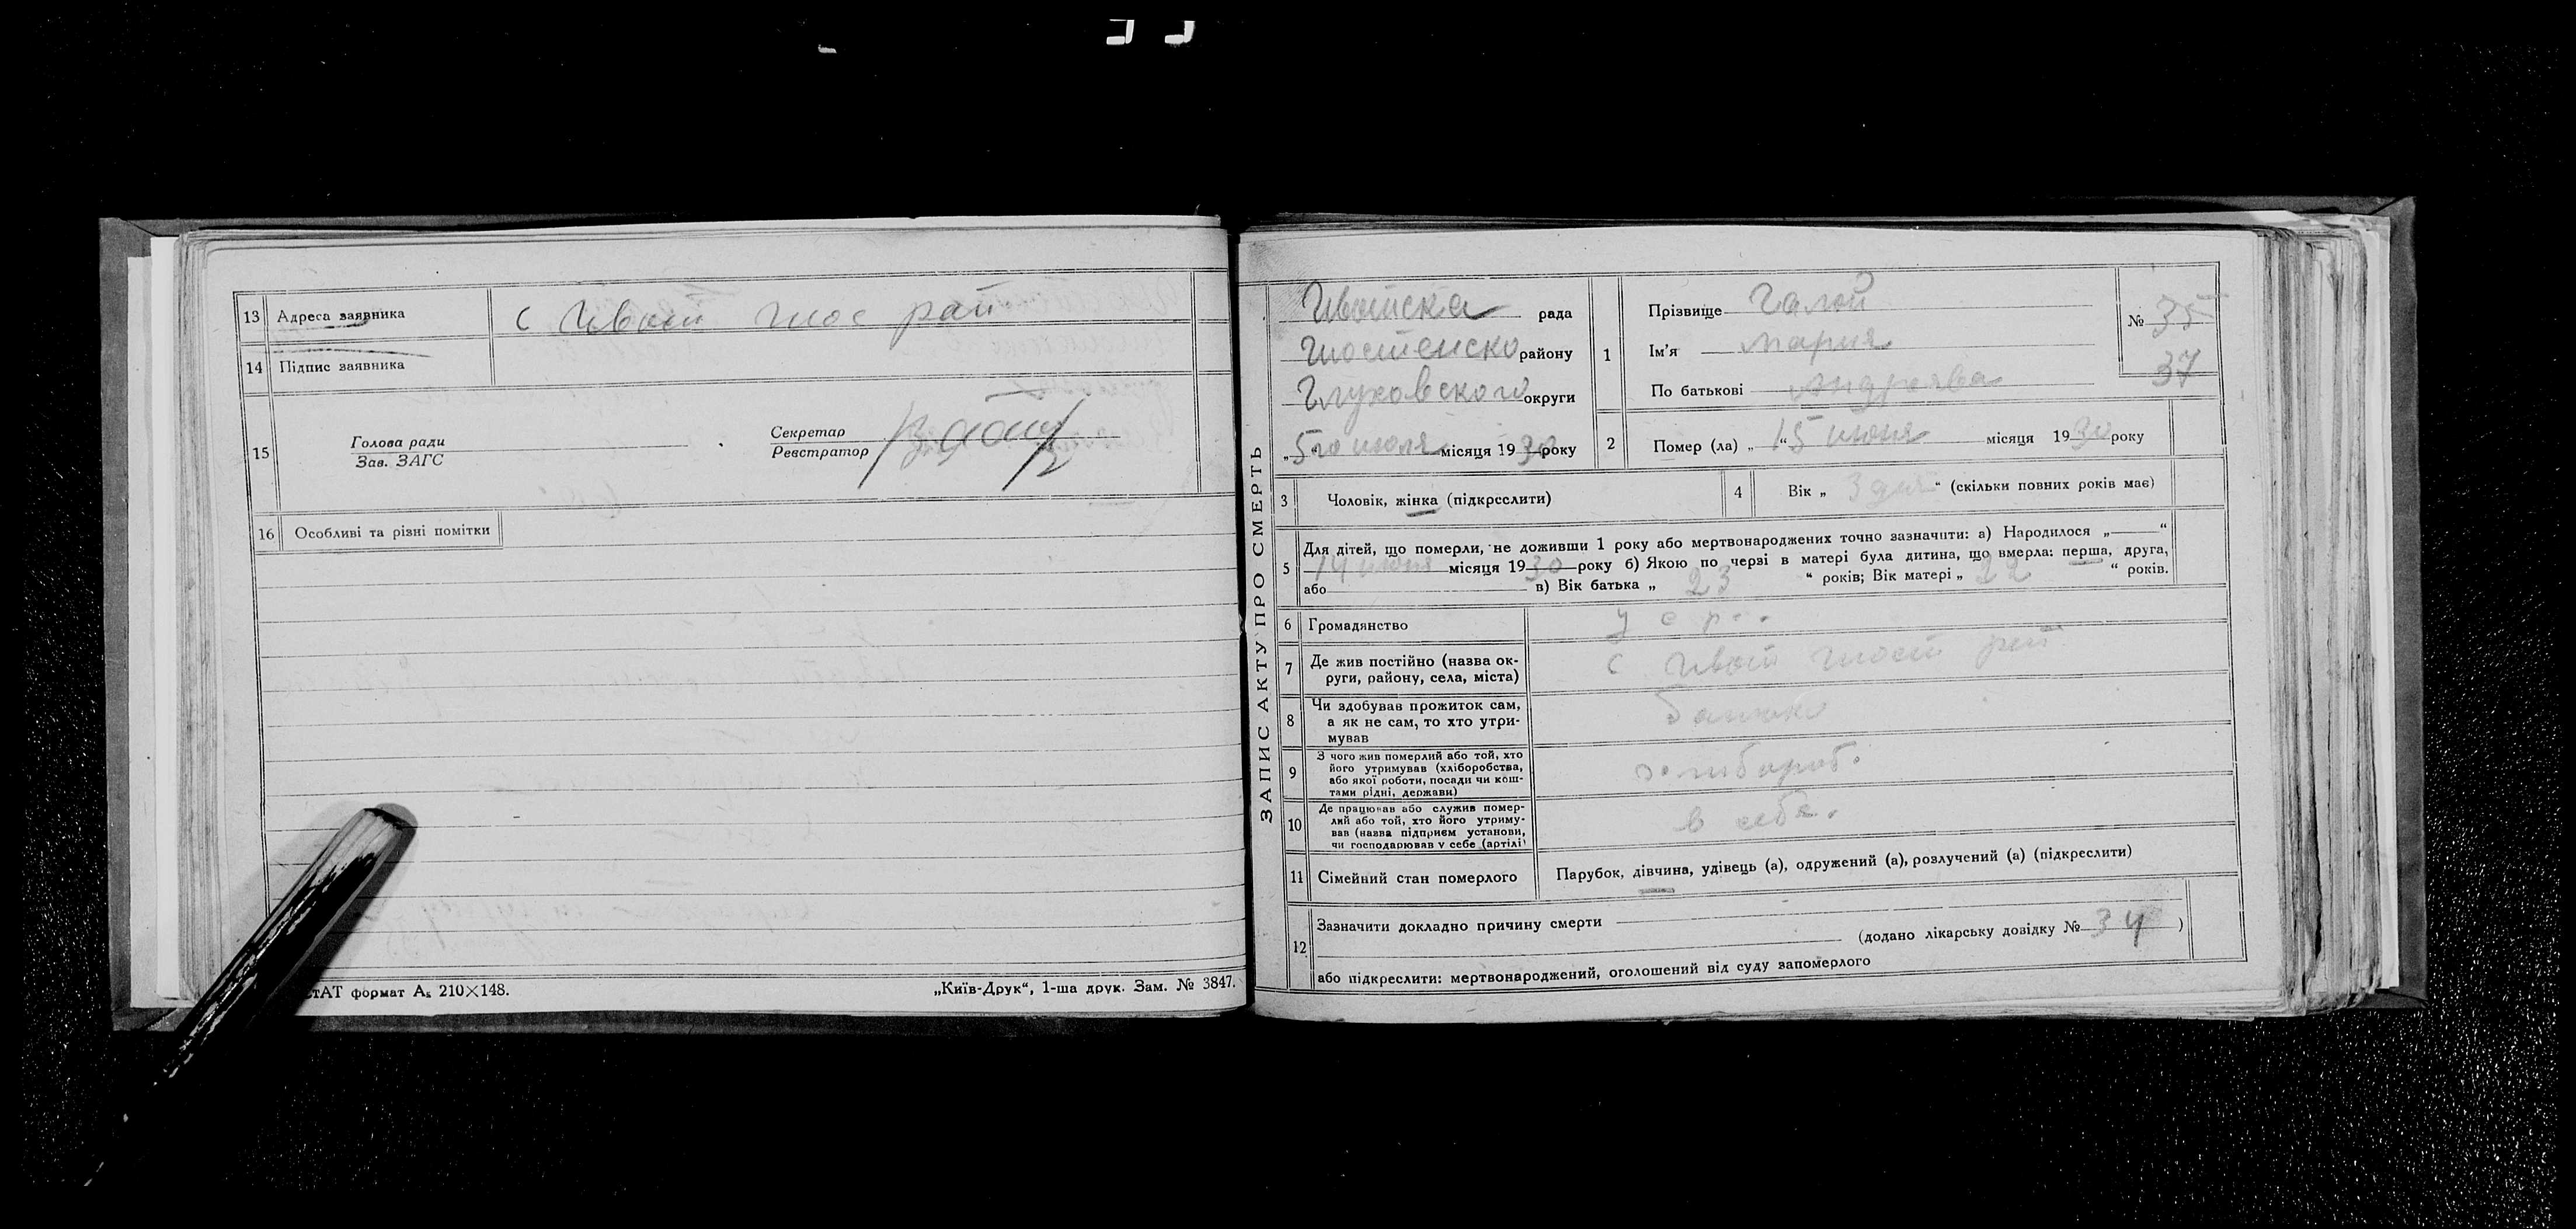 13 Адреса заявника с Ивот шос рай
14 Підпис заявника
15 Голова ради
Зав. ЗАГС
Секретар
Реєстратор
16 Особливі та різні помітки
стАТ формат А₅ 210×148.
„Київ-Друк“, 1-ша друк. Зам. № 3847.
ЗАПИС АКТУ ПРО СМЕРТЬ
Ивотска рада
Шостенско району
Глуховского округи
„5го июля місяця 1930 року
1 Прізвище Галой
Ім’я Мария
По батькові Андреева
№ 35
37
2 Помер (ла) „ “ 15 июня місяця 1930 року
3 Чоловік, жінка (підкреслити)
4 Вік „ 3 дня “ (скільки повних років має)
5 Для дітей, що померли, не доживши 1 року або мертвонароджених точно зазначити: а) Народилося „ “
14 июня місяця 1930 року б) Якою по черзі в матері була дитина, що вмерла: перша, друга,
або в) Вік батька „ 23 “ років; Вік матері „ 22 “ років.
6 Громадянство у с р..
7 Де жив постійно (назва ок-
руги, району, села, міста) с Ивот шост рай
8 Чи здобував прожиток сам,
а як не сам, то хто утри-
мував батько
9 З чого жив померлий або той, хто
його утримував (хліборобства,
або якої роботи, посади чи кош-
тами рідні, держави)
10 Де працював або служив помер-
лий або той, хто його утриму-
вав (назва підприєм установи,
чи господарював у себе (артілі) в себе.
11 Сімейний стан померлого Парубок, дівчина, удівець (а), одружений (а), розлучений (а) (підкреслити)
12 Зазначити докладно причину смерти
(додано лікарську довідку № 34 )
або підкреслити: мертвонароджений, оголошений від суду запомерлого